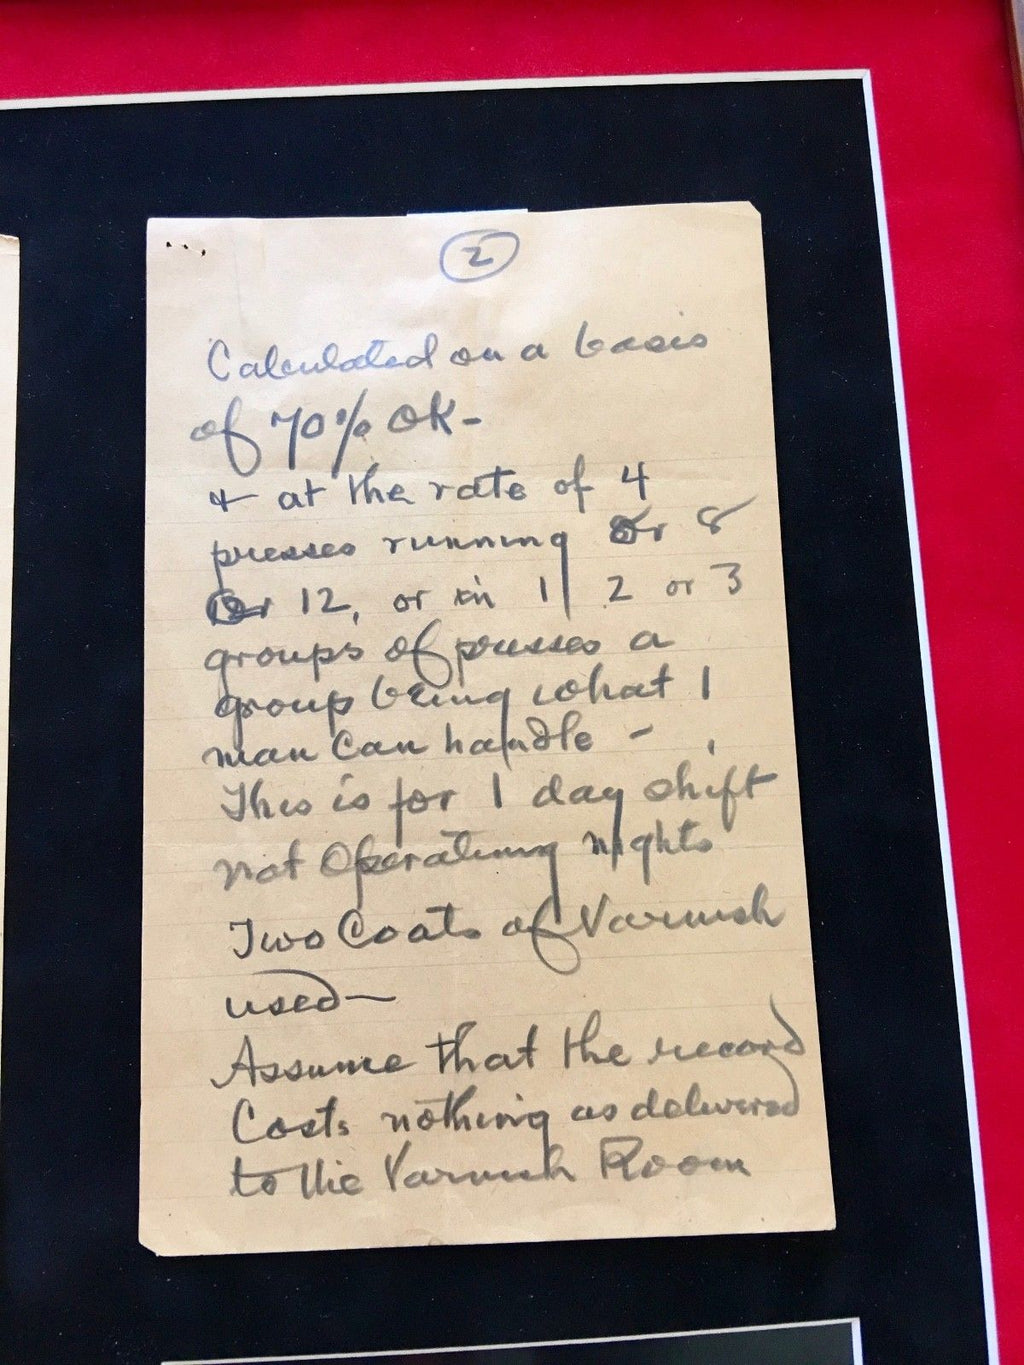 2
Calculated on a basis
of 70% OK-
+ at the rate of 4
presses running or 8
or 12, or in 1, 2 or 3
groups of presses a
group being what 1
man can handle -
This is for 1 day shift
not Operating nights
Two Coats of Varnish
used—
Assume that the record
Costs nothing as delivered
to the Varnish Room